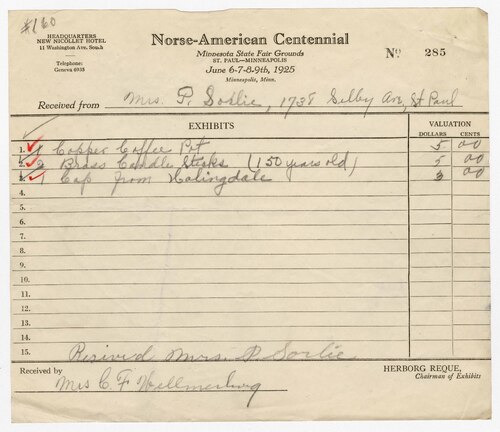 #160
HEADQUARTERS
NEW NICOLLET HOTEL
11 Washington Ave. South
Telephone:
Geneva 6935
Norse-American Centennial
Minnesota State Fair Grounds
ST. PAUL—MINNEAPOLIS
June 6-7-8-9th, 1925
Minneapolis, Minn.
No. 285
Received from Mrs. P. Sorlie, 1738 Selby Av, St Paul
EXHIBITS
VALUATION
DOLLARS CENTS
1. 1 Copper Coffee Pot 5 00
2. 2 Brass Candle Sticks (150 years old) 5 00
3. 1 Cap from Halingdale 3 00
4.
5.
6.
7.
8.
9.
10.
11.
12.
13.
14.
15. Recived Mrs. P. Sorlie
Received by Mrs C F
HERBORG REQUE,
Chairman of Exhibits